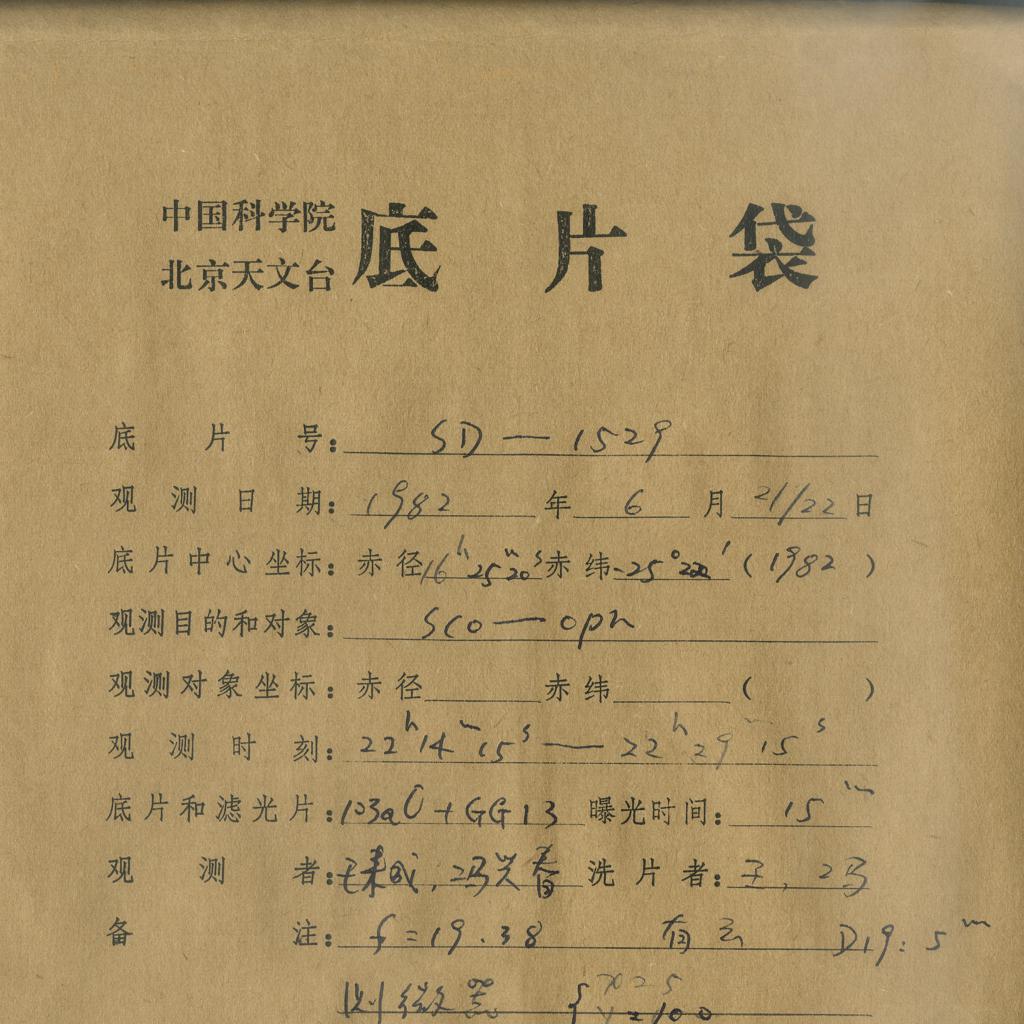 中国科学院
北京天文台
底片袋
底片号: SD—1529
观测日期: 1982年6月21/22日
底片中心坐标: 赤径16h25m20s赤纬-25°22′(1982)
观测目的和对象: Sco—oph
观测对象坐标: 赤径 赤纬 ( )
观测时刻: 22h14m15s—22h29m15s
底片和滤光片: 103aO+GG13 曝光时间: 15m
观测者: 王 , 冯兴春 洗片者: 王, 冯
备注: f=19.38 有云 D19: 5m
测微器 { x=25
y=100